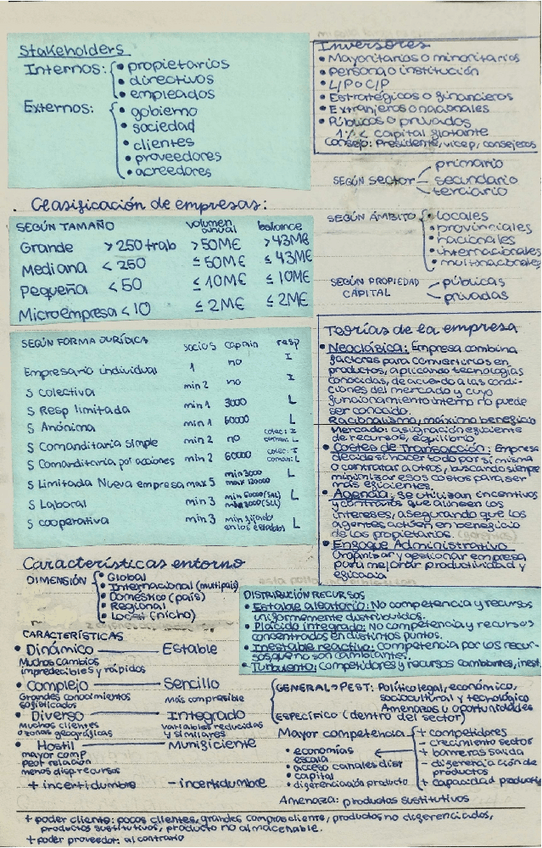 Stakeholders
Internos:
• propietarios
• directivos
• empleados
Externos:
• gobierno
• sociedad
• clientes
• proveedores
• acreedores
Inversores
• Mayoritarios o minoritarios
• Persona o institución
• L/P o C/P
• Estratégicos o financieros
• Extranjeros o nacionales
• Públicos o privados
1% < capital flotante
Consejo: Presidente, vicep, consejeros
. Clasificación de empresas:
SEGÚN TAMAÑO volumen anual balance
Grande > 250 trab > 50M€ > 43M€
Mediana < 250 ≤ 50M€ ≤ 43M€
Pequeña < 50 ≤ 10M€ ≤ 10M€
Microempresa < 10 ≤ 2M€ ≤ 2M€
SEGÚN SECTOR
primario
secundario
terciario
SEGÚN ÁMBITO
• locales
• provinciales
• nacionales
• internacionales
• multinacionales
SEGÚN PROPIEDAD CAPITAL
públicas
privadas
SEGÚN FORMA JURÍDICA socios cap min resp
Empresario individual 1 no I
S Colectiva min 2 no I
S Resp limitada min 1 3000 L
S Anónima min 1 60000 L
S Comanditaria simple min 2 no colec: I coman: L
S Comanditaria por acciones min 2 60000 colec: I coman: L
S Limitada Nueva empresa max 5 min 3000 max 120000 L
S Laboral min 3 L
S cooperativa min 3 min fijado en los estatutos L
Teorías de la empresa
• Neoclásica: Empresa combina
factores para convertirlos en
productos, aplicando tecnologías
conocidas, de acuerdo a las condi-
ciones del mercado y cuyo
funcionamiento interno no puede
ser conocido.
Racionalismo, máximo beneficio
Mercado: asignación eficiente
de recursos, equilibrio
• Costes de Transacción: Empresa
decide si hacer todo por sí misma
o contratar a otros, buscando siempre
minimizar esos costos para ser
más eficientes.
• Agencia: Se utilizan incentivos
y contratos que alineen los
intereses, asegurando que los
agentes actúen en beneficio
de los propietarios.
• Enfoque Administrativo
Organizar y gestionar empresa
para mejorar productividad y
eficacia
Características entorno
DIMENSIÓN
• Global
• Internacional (multipaís)
• Doméstico (país)
• Regional
• Local (nicho)
DISTRIBUCIÓN RECURSOS
• Estable aleatorio: No competencia y recursos
uniformemente distribuidos.
• Plácido integrado: No competencia y recursos
concentrados en distintos puntos.
• Inestable reactivo: Competencia por los recur-
sos que no son cambiantes.
• Turbulento: Competidores y recursos cambiantes, inest.
CARACTERÍSTICAS
• Dinámico — Estable
Muchos cambios
impredecibles y rápidos
• Complejo — Sencillo
Grandes conocimientos
sofisticados
más comprensible
• Diverso — Integrado
Muchos clientes
o zonas geográficas
variables reducidas
y similares
• Hostil — Munificiente
mayor comp
peor relación
menos disp recursos
+ incertidumbre - incertidumbre
GENERAL → PEST: Político legal, económico,
sociocultural y tecnológico
Amenazas u oportunidades
ESPECÍFICO (dentro del sector)
Mayor competencia
+ competidores
- crecimiento sector
+ barreras salida
- diferenciación de
productos
+ capacidad producto
• economías
escala
• acceso canales dist
• capital
• diferenciación producto
Amenaza: productos sustitutivos
+ poder cliente: pocos clientes, grandes compras cliente, productos no diferenciados,
productos sustitutivos, producto no almacenable.
+ poder proveedor: al contrario